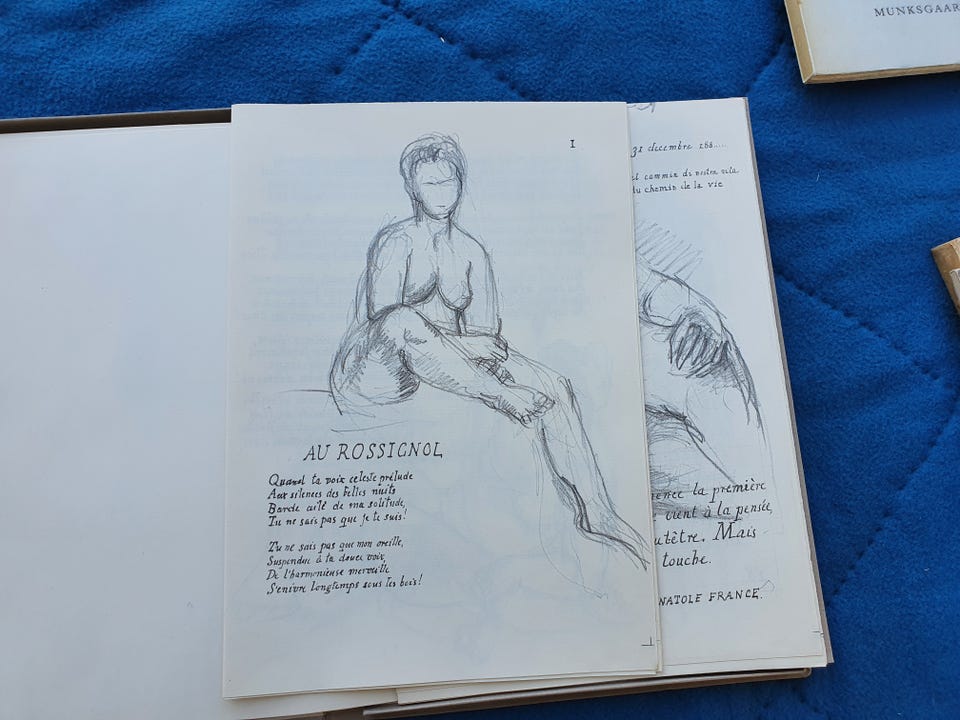 MUNKSGAAR
I
AU ROSSIGNOL
Quand ta voix celeste prélude
Aux silences des belles nuits
Barde ailé de ma solitude,
Tu ne sais pas que je te suis!
Tu ne sais pas que mon oreille,
Suspendue à ta douce voix,
De l'harmonieuse merveille
S'enivre longtemps sous les bois!
31 decembre 188.....
el cammin di nostra vita
du chemin de la vie
mence la première
vient à la pensée,
utêtre. Mais
touche.
NATOLE FRANCE.